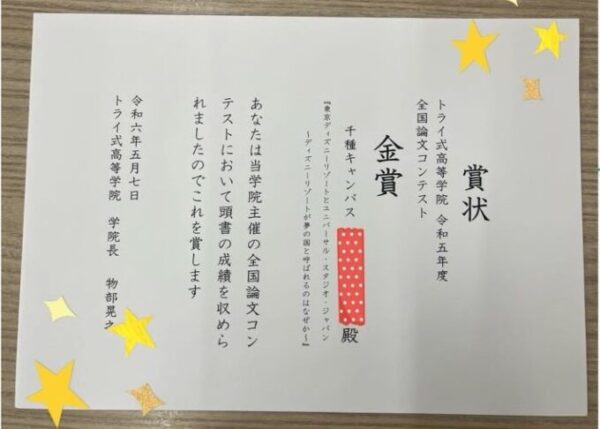 賞状
トライ式高等学院 令和五年度
全国論文コンテスト
金賞
『東京ディズニーリゾートとユニバーサル・スタジオ・ジャパン
～ディズニーリゾートが夢の国と呼ばれるのはなぜか～』
千種キャンパス 殿
あなたは当学院主催の全国論文コン
テストにおいて頭書の成績を収めら
れましたのでこれを賞します
令和六年五月七日
トライ式高等学院 学院長 物部晃之